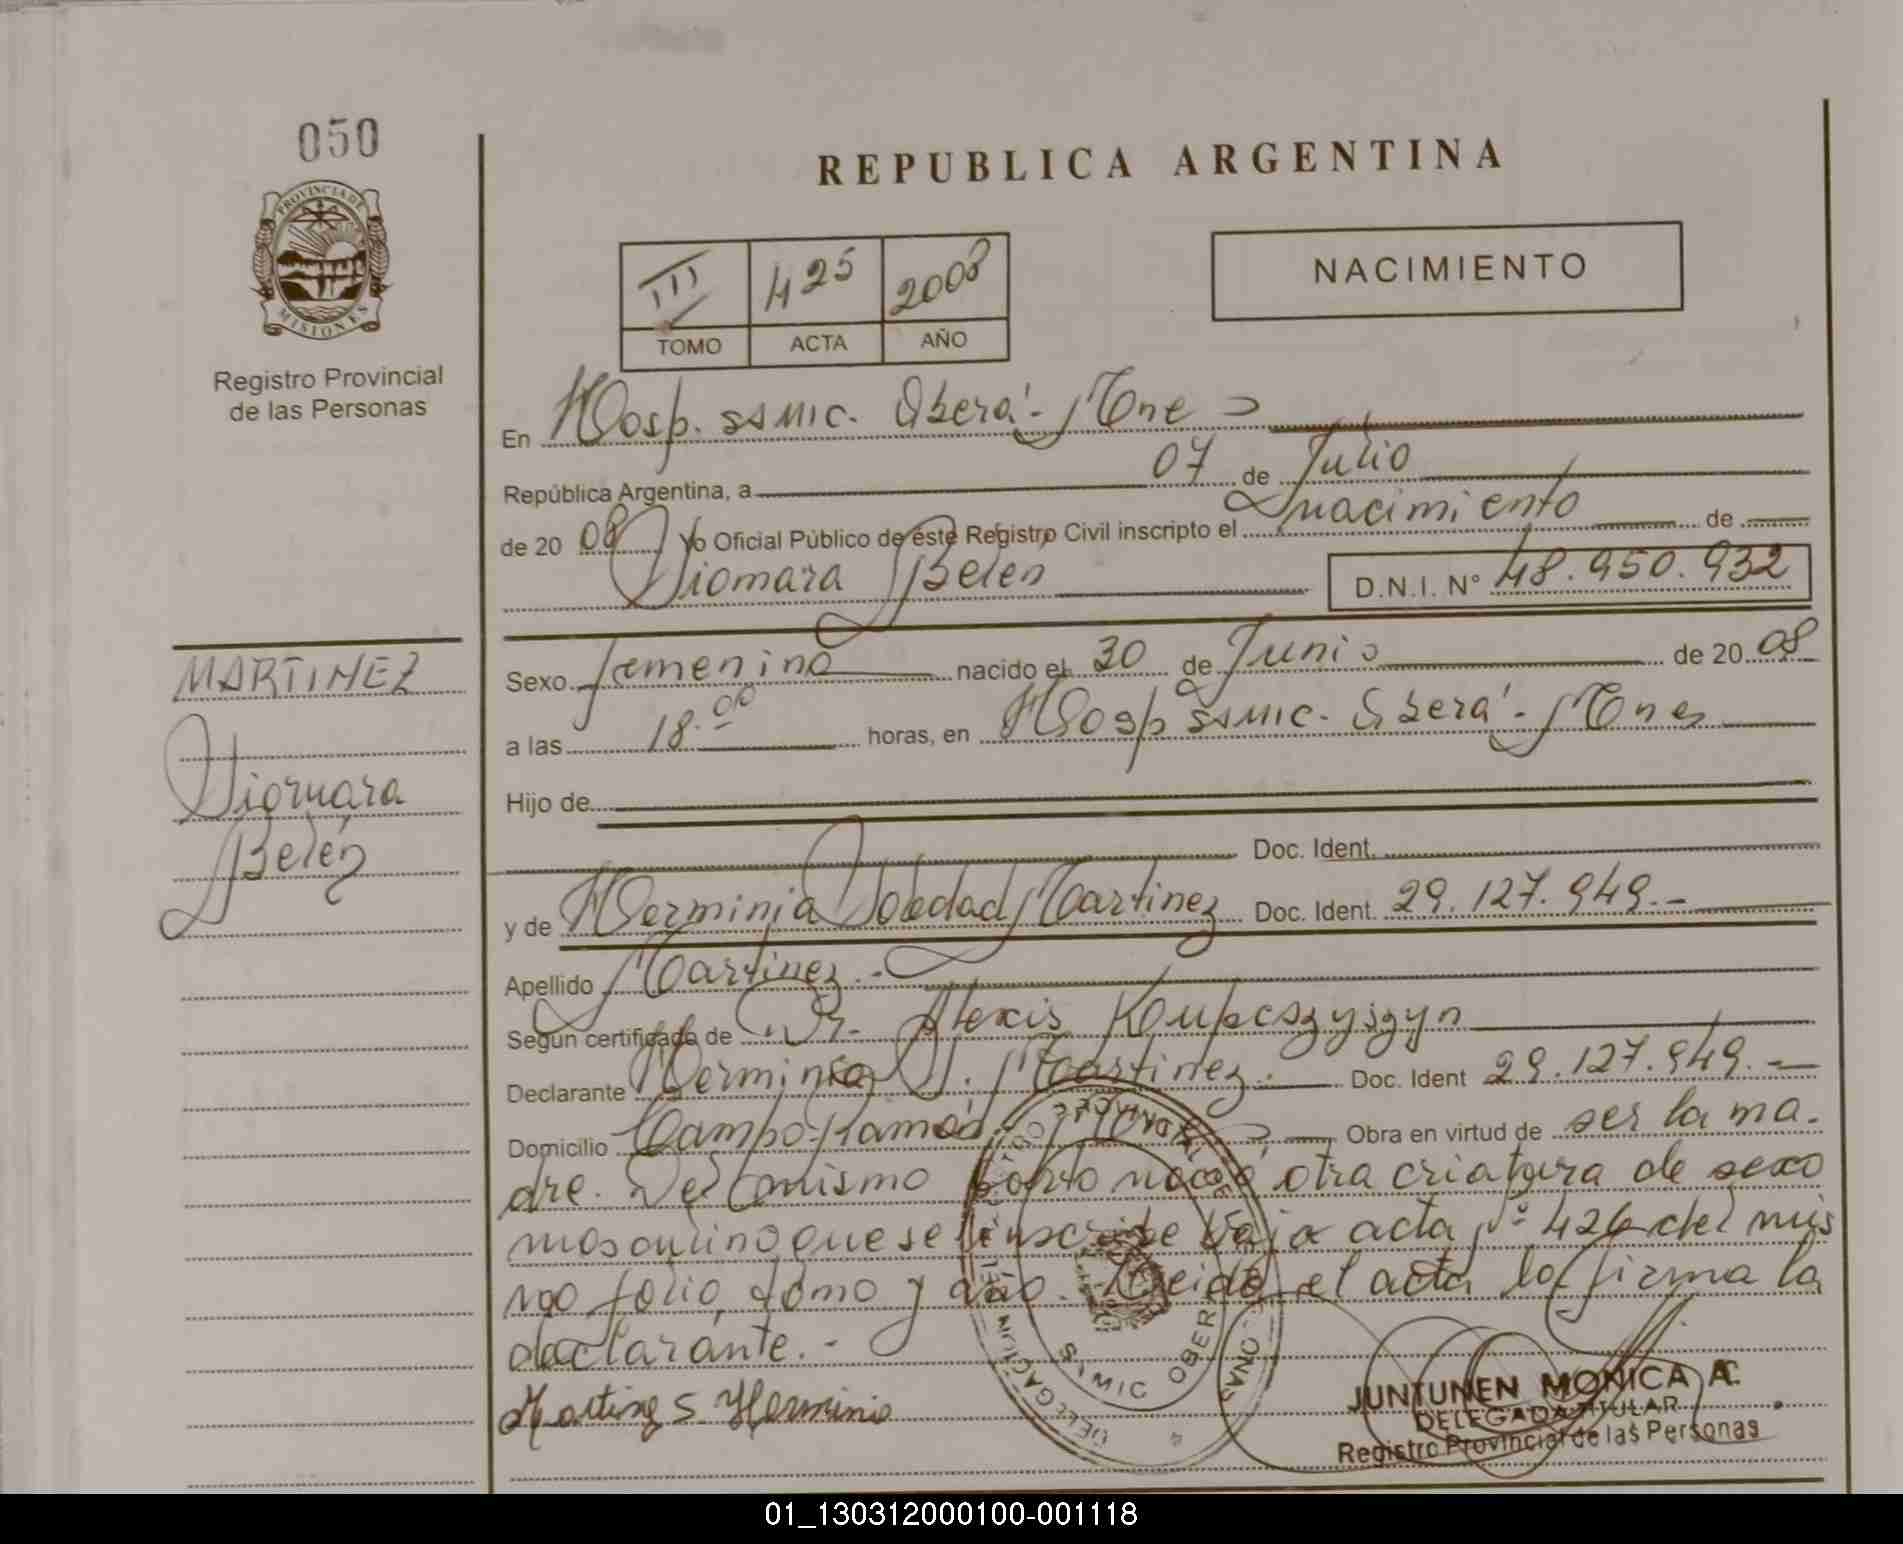 050
PROVINCIA DE
MISIONES
Registro Provincial
de las Personas
REPUBLICA ARGENTINA
III 425 2008
TOMO ACTA AÑO
NACIMIENTO
En Hosp. SAMIC. Oberá - Mnes
República Argentina, a 07 de Julio
de 20 08 Yo Oficial Público de este Registro Civil inscripto el nacimiento de
Xiomara Belen D.N.I. Nº 48.950.932
Sexo femenino nacido el 30 de Junio de 20 08
a las 18.00 horas, en Hosp SAMIC. Oberá - Mnes
Hijo de
Doc. Ident.
y de Herminia Soledad Martinez Doc. Ident. 29.127.949.-
Apellido Martinez.-
Según certificado de Dr. Alexis
Declarante Herminia S. Martinez. Doc. Ident 29.127.949.-
Domicilio Campo Ramón Obra en virtud de ser la ma-
dre. Del mismo parto nació otra criatura de sexo
masculino que se inscribe bajo acta Nº 426 del mis
mo folio, tomo y año. Leida el acta la firma la
declarante.-
Martinez S Herminia
MARTINEZ
Xiomara
Belén
DELEGACION
SAMIC OBERA
JUNTUNEN MONICA A.
DELEGADA TITULAR
Registro Provincial de las Personas
01_130312000100-001118